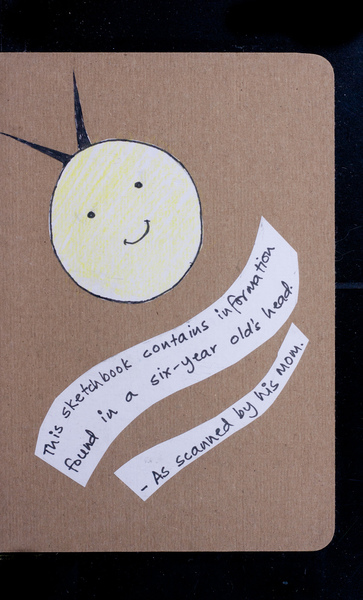 This sketchbook contains information
found in a six-year old's head.
- As scanned by his mom.